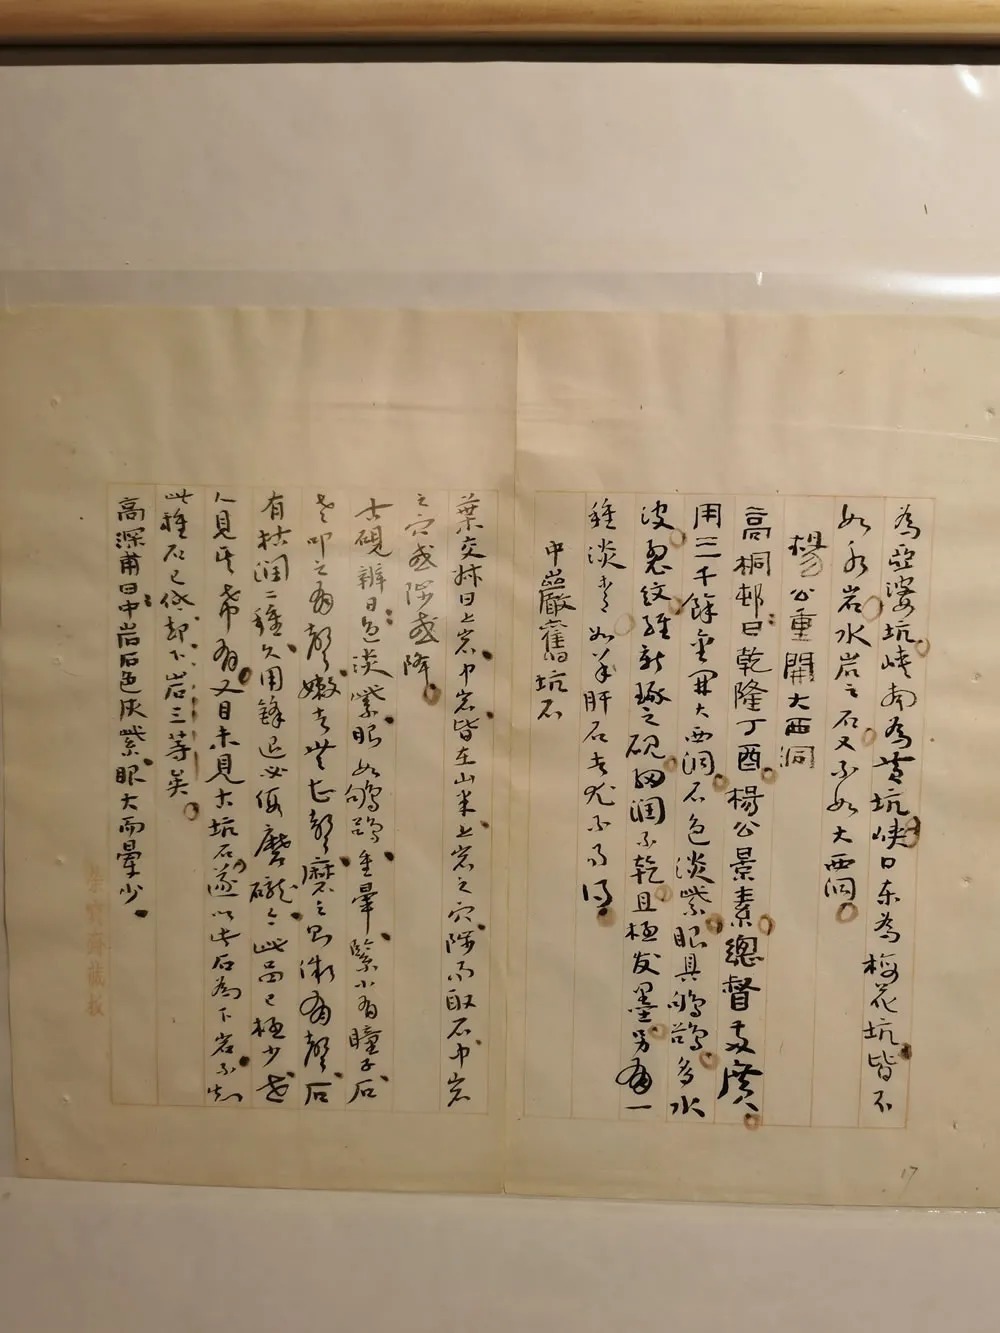 為亞婆坑峽南為黃坑峽口東為梅花坑皆不
如水岩水岩之石又不如大西洞
楊公重開大西洞
高桐邨曰乾隆丁酉楊公景素總督两廣
用三千餘金開大西洞石色淡紫眼具鸲鹆多水
波忽紋雖新琢之硯細潤不乾且極发墨另有一
種淡青如羊肝石者尤不易得
中巖舊坑石
葉交林曰上岩中岩皆在山半上岩之穴陟而取石中岩
之穴或陟或降
古硯辨曰色淡紫眼如鸲鹆重暈緊小有瞳子石
老叩之有聲嫩者無亡聲磨之則微有聲石
有枯潤二種久用鋒退必假磨礲今此品已極少世
人見其希有又目未見古坑石遂以此石為下岩不知
此種石已低却下岩三等矣
高深甫曰中岩石色灰紫眼大而暈少
榮寶齋藏板
17